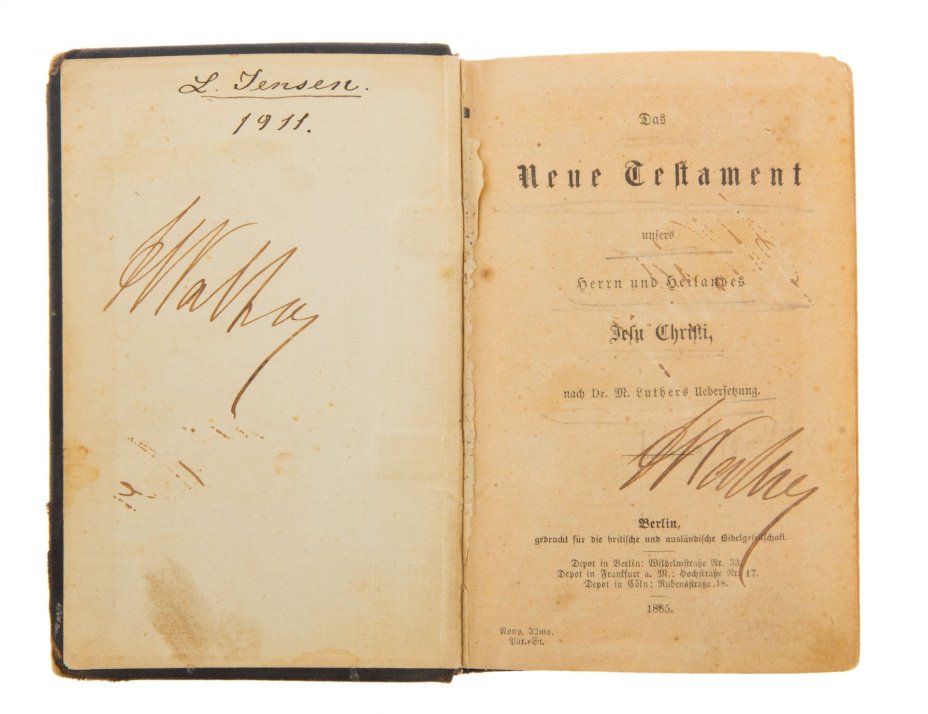 L. Jensen.
1911.
Das
Neue Testament
unsers
Herrn und Heilandes
Jesu Christi,
nach Dr. M. Luthers Uebersetzung.
Berlin,
gedruckt für die britische und ausländische Bibelgesellschaft.
Depot in Berlin: Wilhelmstraße Nr. 33.
Depot in Frankfurt a. M.: Hochstraße Nr. 17.
Depot in Cöln: Rubensstraße 18.
1885.
Nonp. 32mo.
Var.-St.